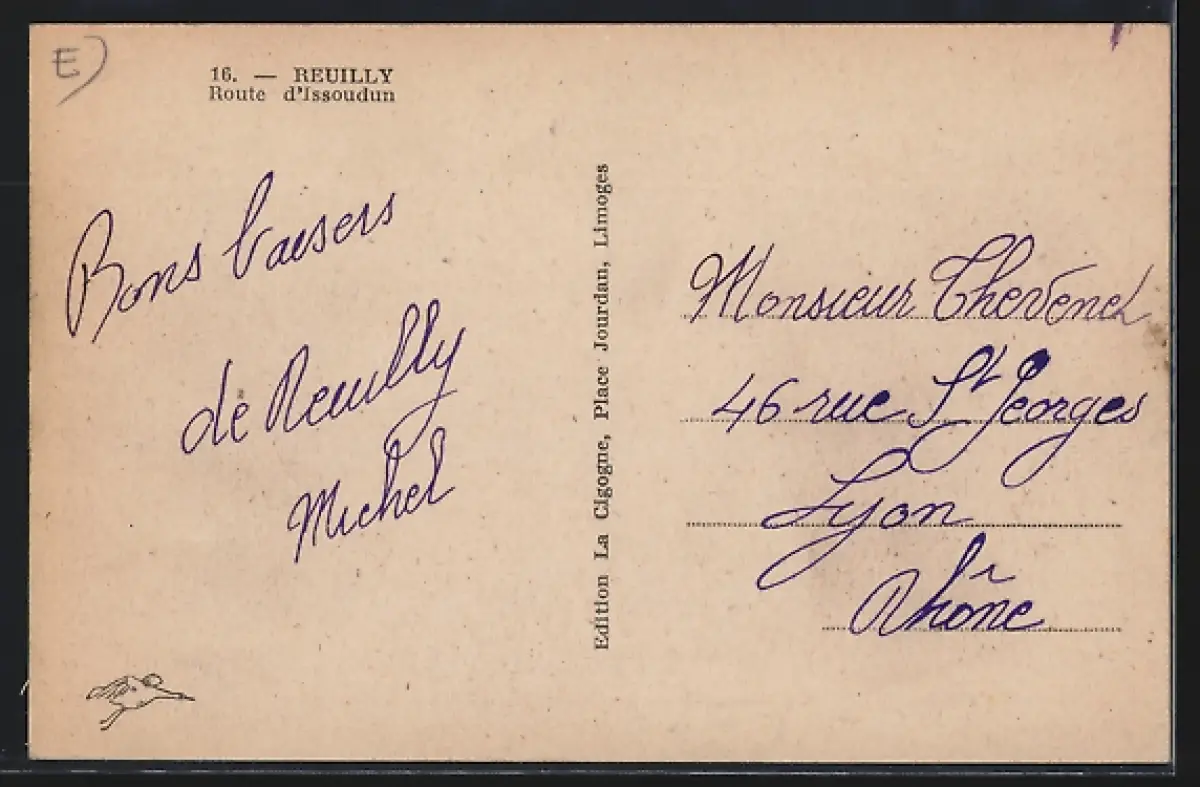 E)
16. — REUILLY
Route d'Issoudun
Bons baisers
de Reuilly
Michel
Edition La Cigogne, Place Jourdan, Limoges
Monsieur
46 rue St Georges
Lyon
Rhône